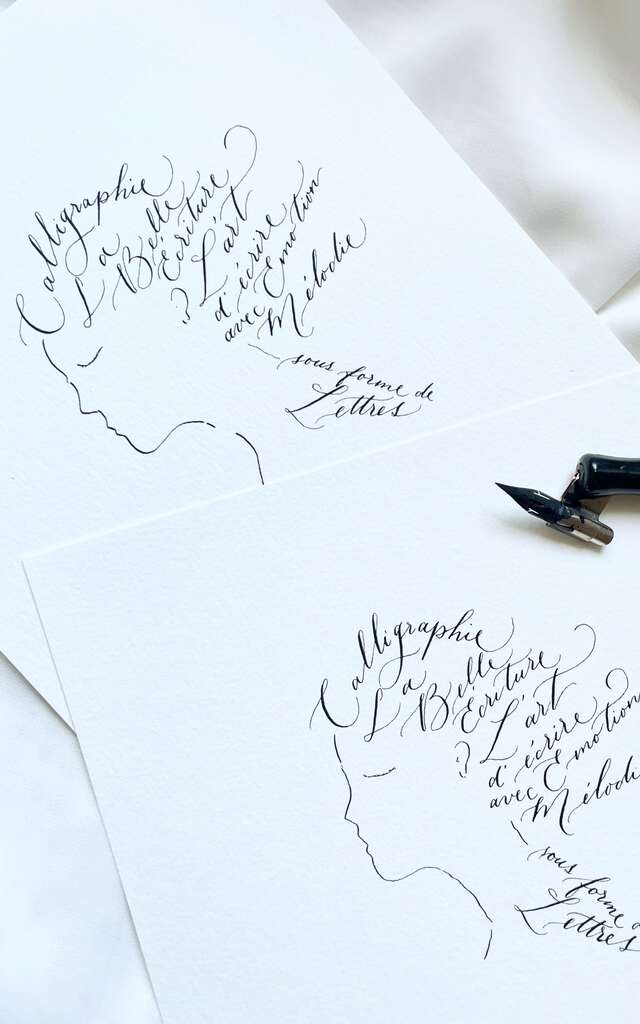 Calligraphie
La Belle
Écriture
L'art
d'écrire
avec Emotion
Mélodie
sous forme de
Lettres
Calligraphie
La Belle
Écriture
L'art
d'écrire
avec Emotion
Mélodie
sous forme
Lettres